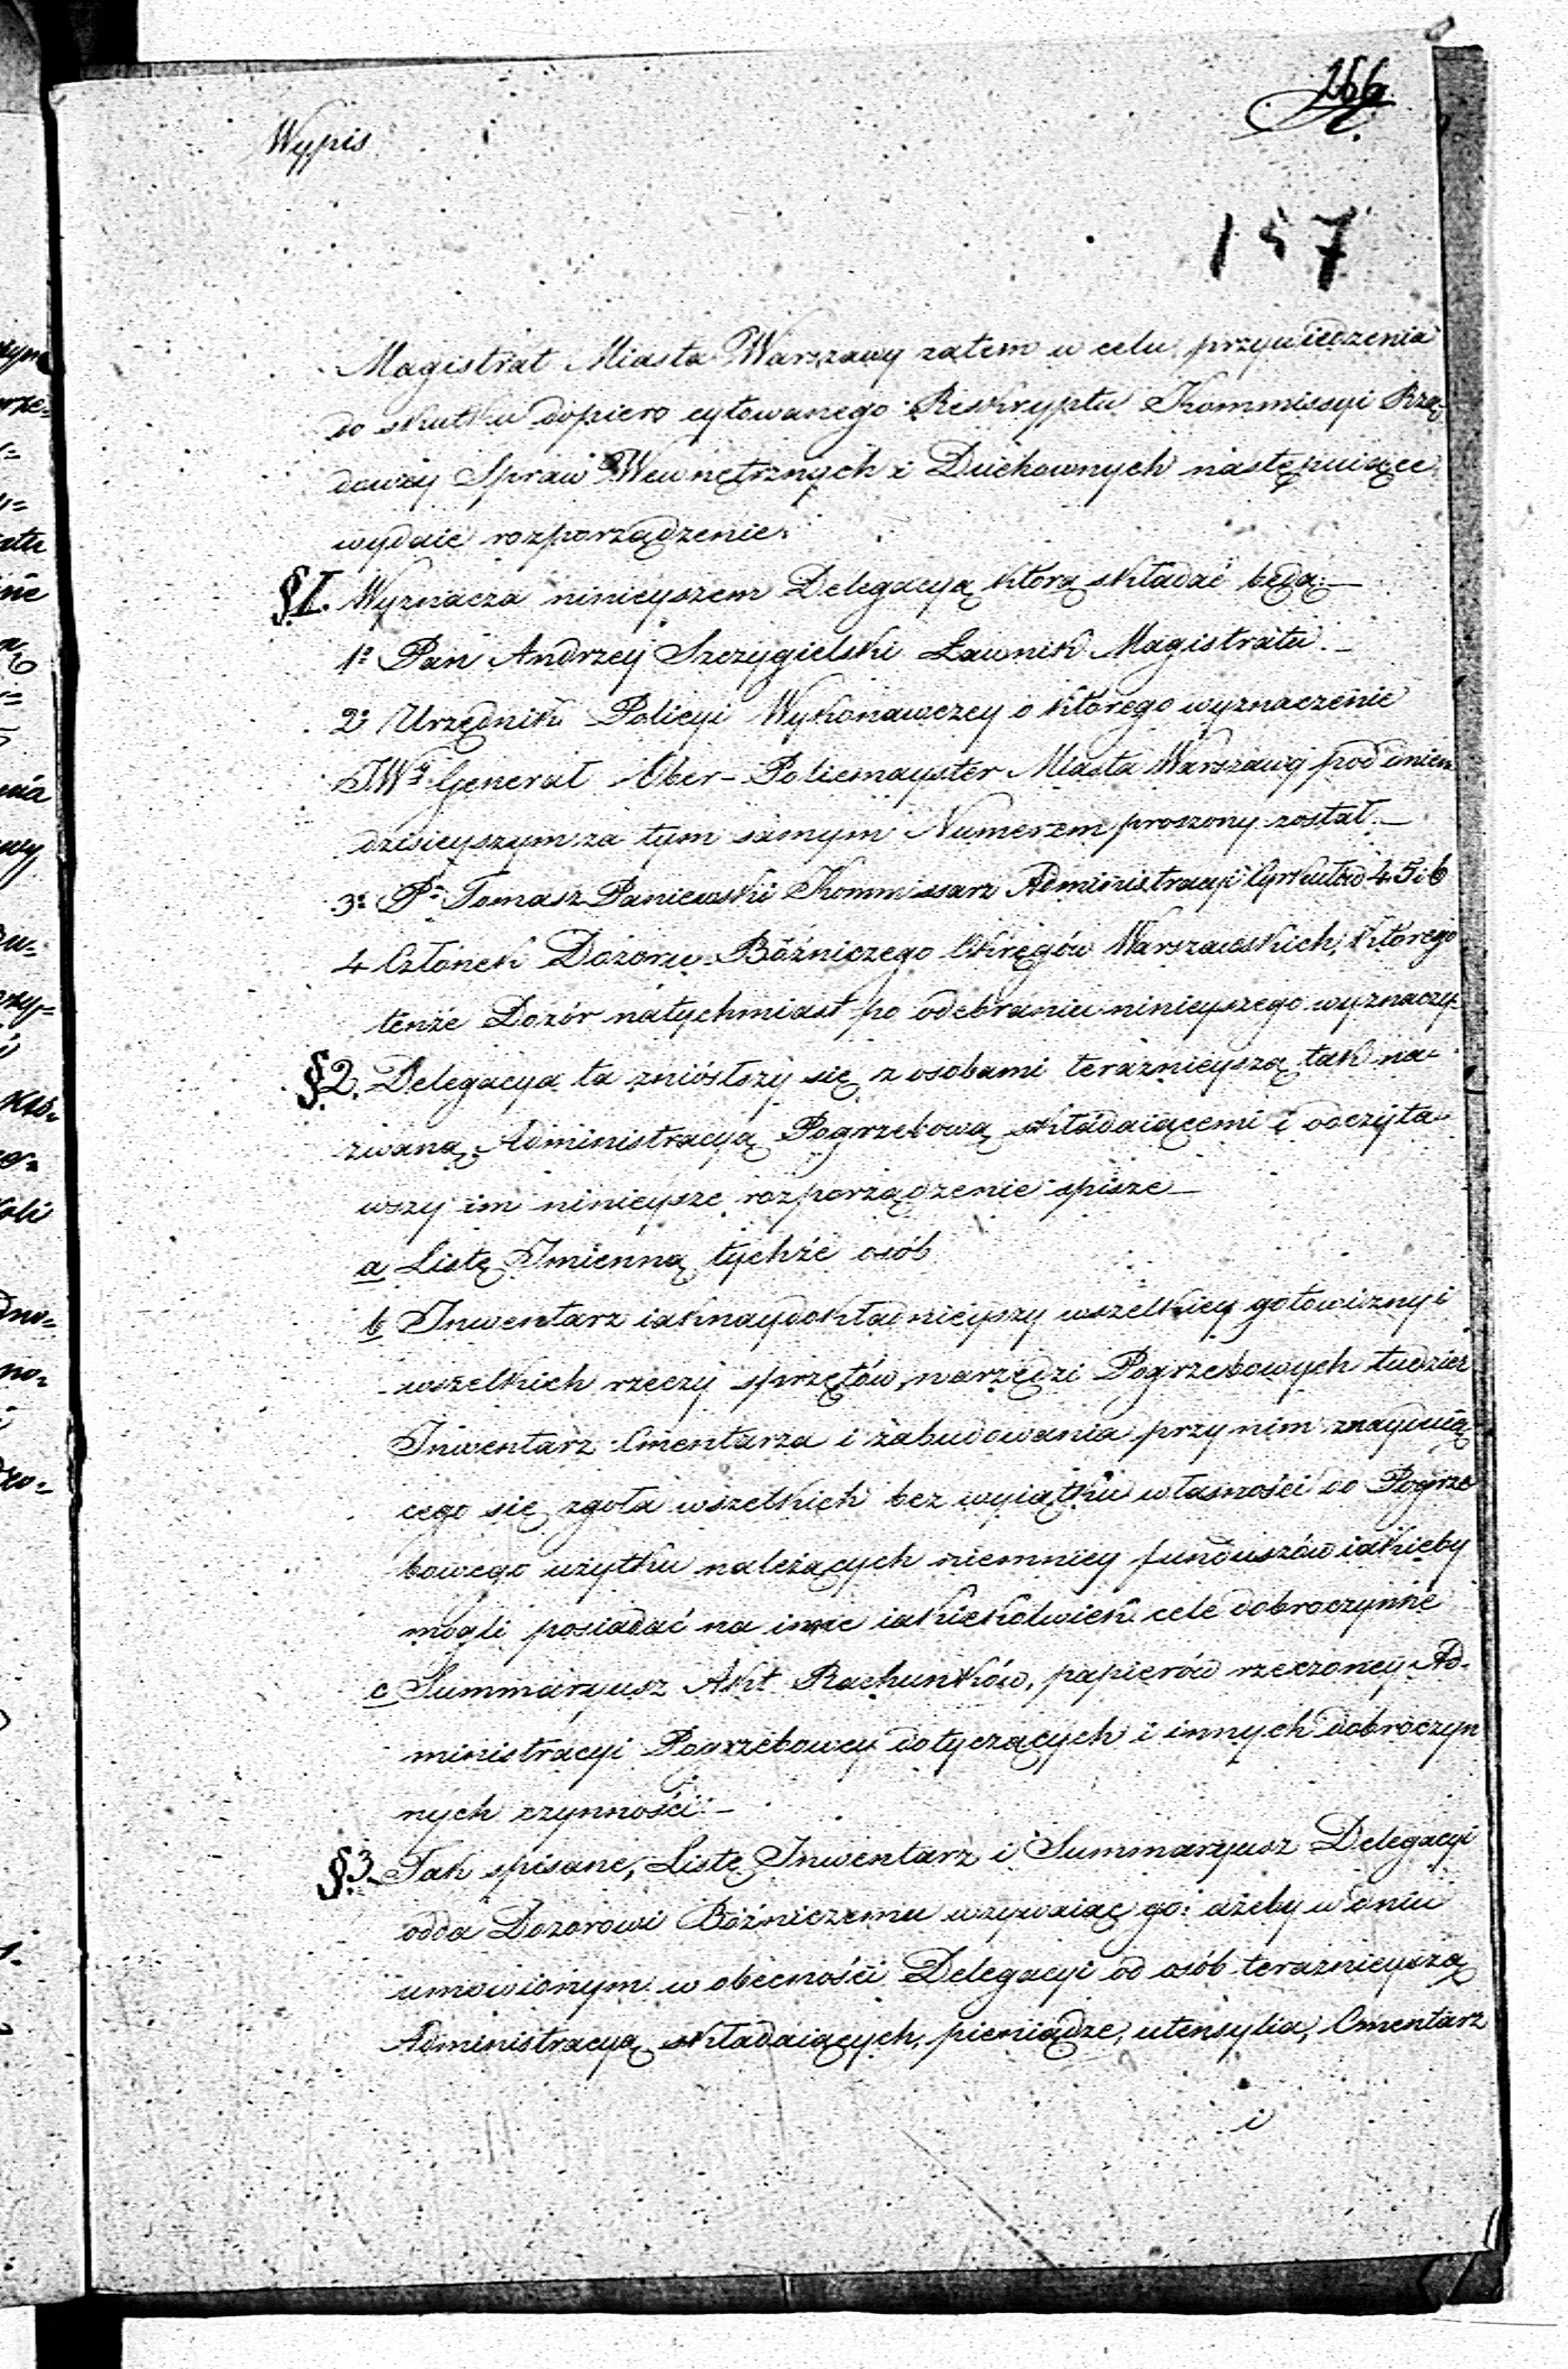 266
Wypis
157
Magistrat Miasta Warszawy zatem w celu przywiedzenia
do skutku dopiero cytowanego Reskryptu Kommissyi Rzą-
dowey Spraw Wewnętrznych i Duchownych następuiące
wydaie rozporządzenie.
§1. Wyznacza ninieyszem Delegacyą którą składać będą: —
1º Pan Andrzey Szczygielski Ławnik Magistratu. —
2º Urzędnik Policyi Wykonawczey o którego wyznaczenie
JWy Generał Ober-Policmayster Miasta Warszawy pod dniem
dzisieyszym za tym samym Numerem proszony został. —
3º Pn Tomasz Paniewski Kommissarz Administracyi Cyrkułów 4. 5 i 6
4 Członek Dozoru Bóżniczego Okręgów Warszawskich, którego
tenże Dozór natychmiast po odebraniu ninieyszego wyznaczy.
§2. Delegacya ta zniósłszy się z osobami teraznieyszą tak na-
zwaną Administracyą Pogrzebową składaiącemi i odczyta-
wszy im ninieysze rozporządzenie spisze —
a Listę Imienną tychże osób
b Inwentarz iaknaydokładnieyszy wszelkiey gotowizny i
wszelkich rzeczy sprzętów, narzędzi Pogrzebowych tudzież
Inwentarz Cmentarza i zabudowania przy nim znayduią-
cego się zgoła wszelkich bez wyiątku własności do Pogrze
bowego użytku należących niemniey funduszów iakieby
mogli posiadać na inne iakiekolwiek cele dobroczynne
c Summaryusz Akt Rachunków, papierów rzeczoney Ad-
ministracyi Pogrzebowey dotyczących i innych dobroczyn
nych czynności. —
§3. Tak spisane, Listę Inwentarz i Summaryusz Delegacyi
odda Dozorowi Bóżniczemu wzywaiąc go: ażeby w dniu
umowionym w obecności Delegacyi od osób teraznieyszą
Administracyą składaiących, pieniądze, utensylia, Cmentarz
i